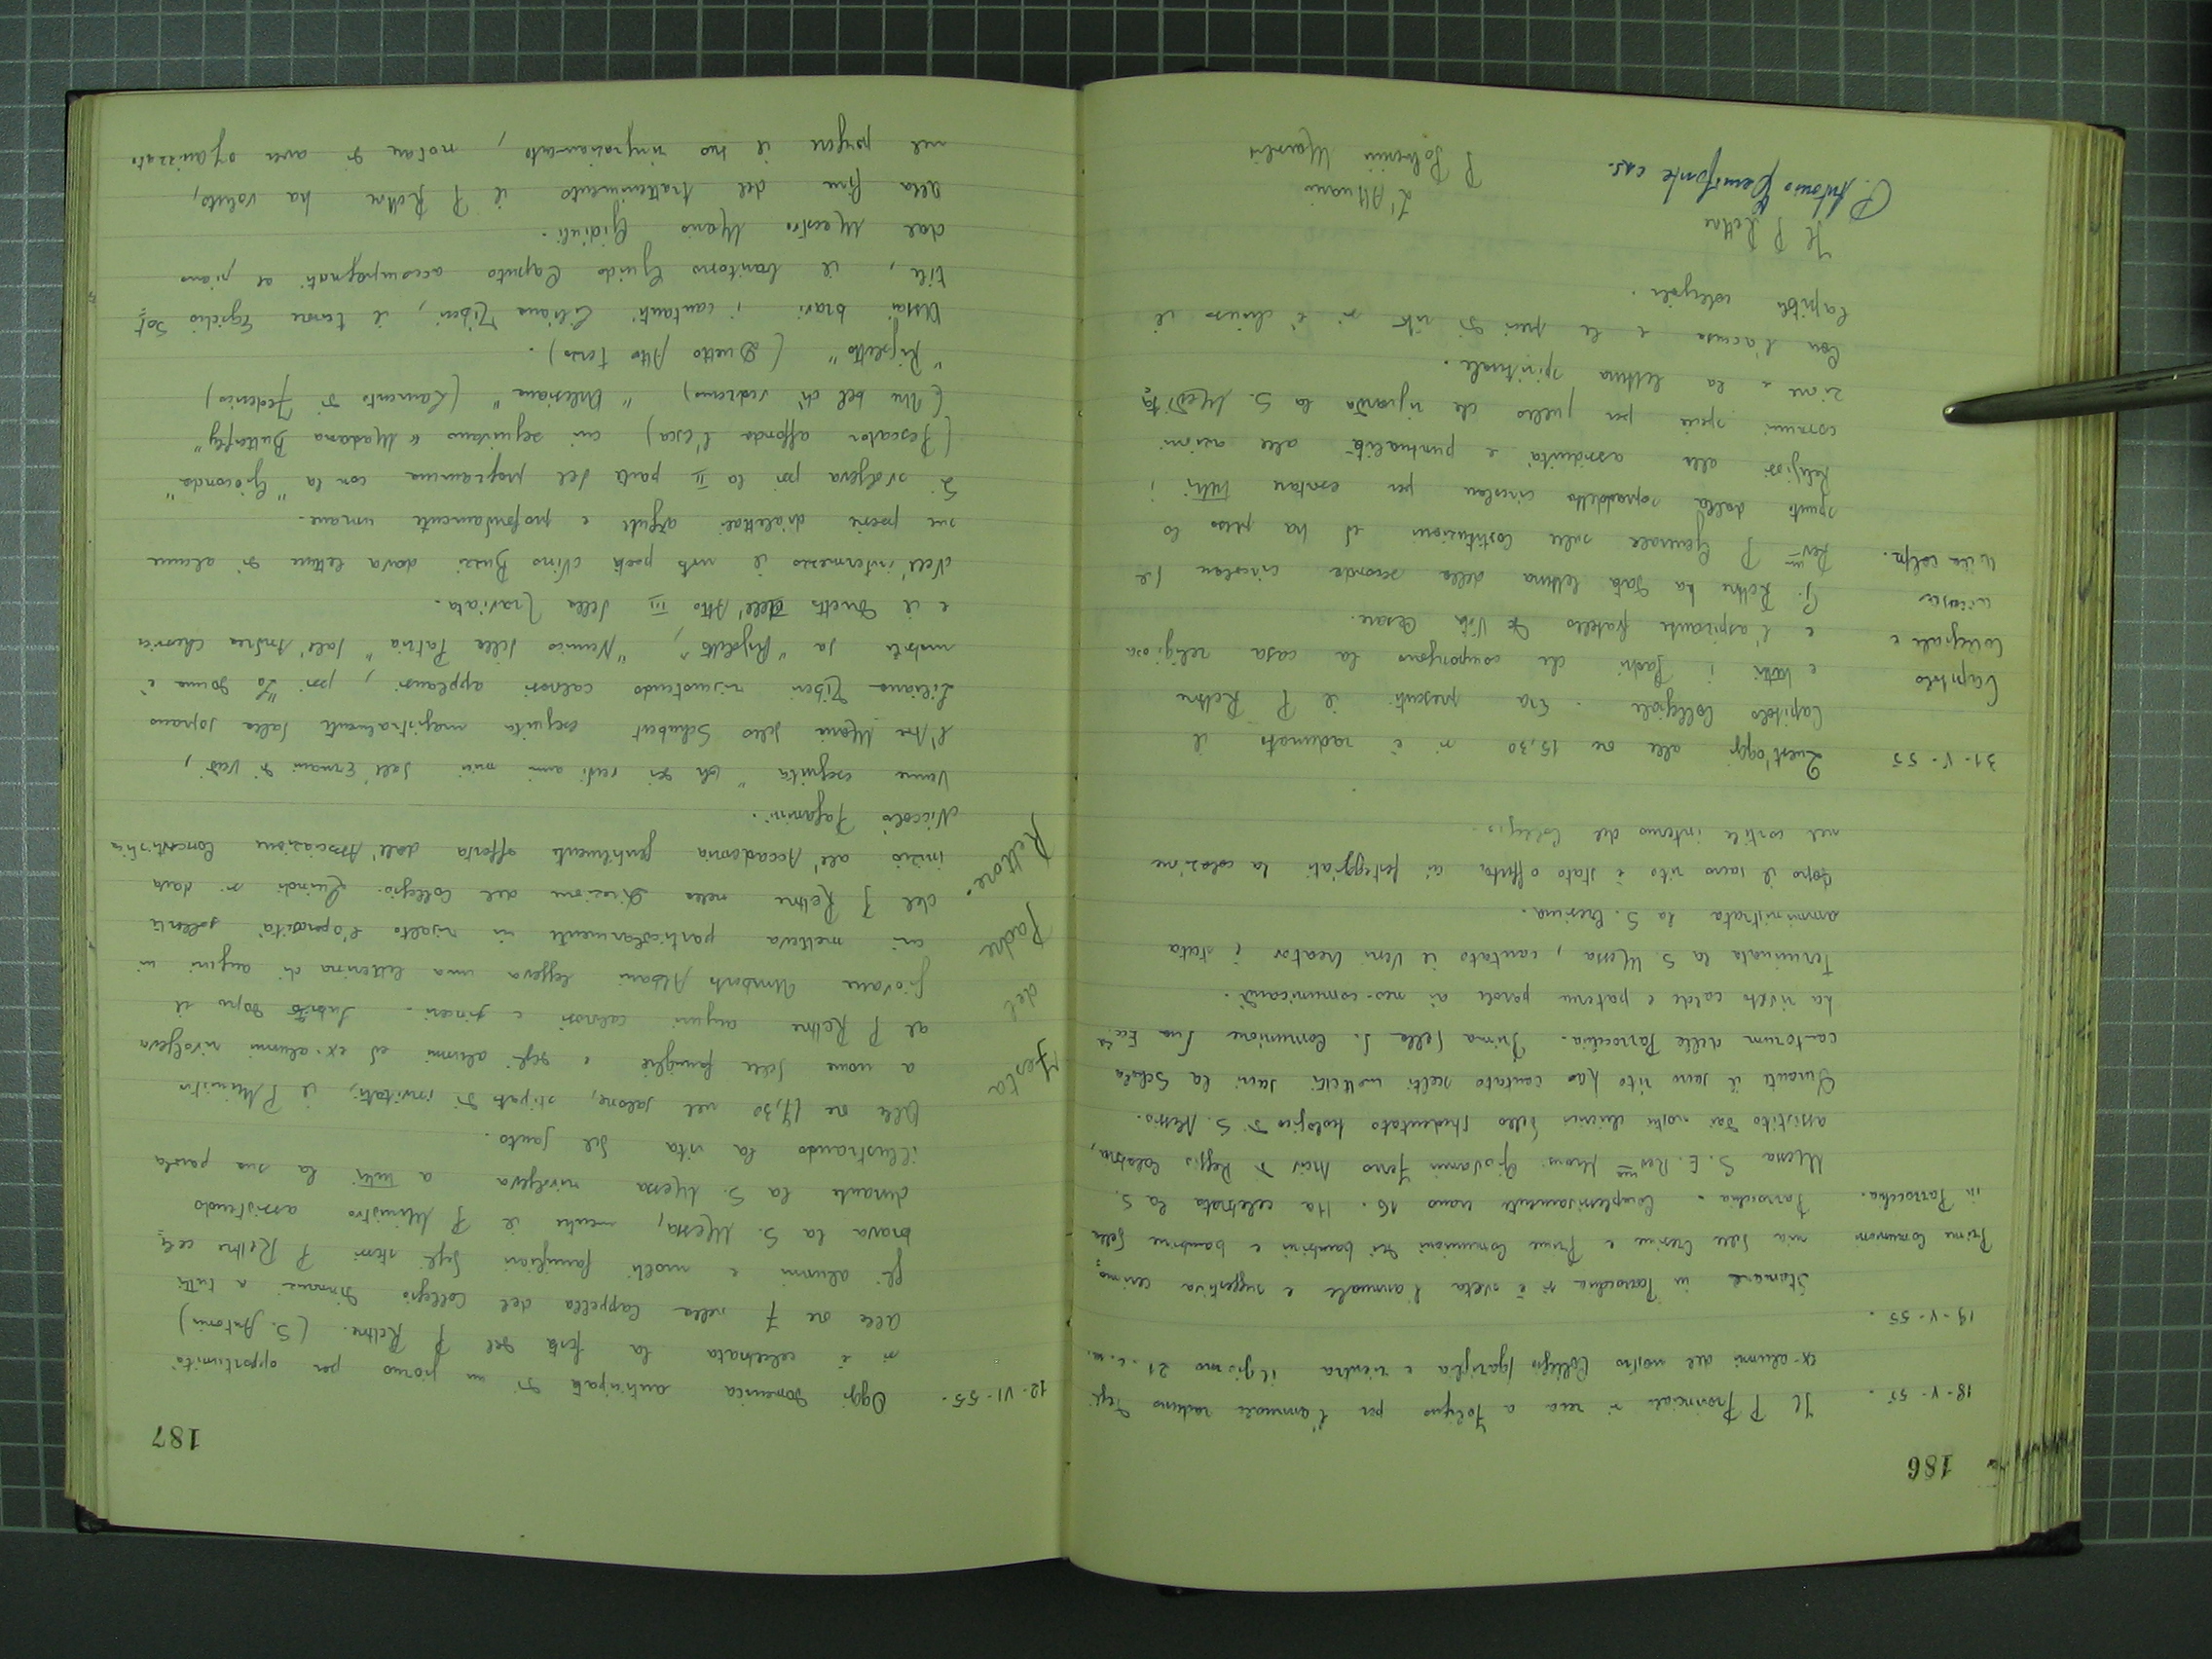 186
18-V-55. Il P Provinciale si reca a Foligno per l'annuale raduno degli
ex-alunni del nostro Collegio Sgariglia e rientra il giorno 21. c. m.
19-V-55.
Stamane in Parrocchia si è svolta l'annuale e suggestiva cerimo=
Prime Comunioni nia delle Cresime e Prime Comunioni dei bambini e bambine della
in Parrocchia. Parrocchia. Complessivamente erano 16. Ha celebrata la S.
Messa S. E. Revma Mons. Giovanni Ferro Arciv. di Reggio Calabria,
assistito dai nostri chierici dello studentato teologico di S. Alessio.
Durante il sacro rito ha cantato scelti mottetti sacri la Schola
cantorum della Parrocchia. Prima della S. Comunione Sua Ecc.za
ha rivolto calde e paterne parole ai neo-comunicandi.
Terminata la S. Messa, cantato il Veni Creator è stata
amministrata la S. Cresima.
Dopo il sacro rito è stato offerta ai festeggiati la colazione
nel cortile interno del Collegio.
31-V-55 Quest'oggi alle ore 15,30 si è radunato il
Capitolo Capitolo Collegiale. Era presenti il P Rettore
Collegiale e e tutti i Padri che compongono la casa religiosa
e l'aspirante fratello De Vita Cesare.
accusa Il P. Rettore ha data lettura della seconda circolare del
delle colpe. Revmo P Generale sulle Costituzioni ed ha preso lo
spunto dalla sopradetta circolare per esortare tutti i
Religiosi alla assiduità e puntualità alle azioni
comuni specie per quello che riguarda la S. Medita=
zione e la lettura spirituale.
Con l'accusa e le preci di rito si è chiuso il
Capitolo collegiale.
Il P Rettore L'Attuario
P. Antonio Temofonte crs. P

187
12-VI-55. Oggi domenica anticipata di un giorno per opportunità
si è celebrata la festa del P Rettore. (S. Antonio)
Alle ore 7 nella Cappella del Collegio dinnanzi a tutti
gli alunni e molti famigliari degli stessi P Rettore cele=
brava la S. Messa, mentre il P Ministro assistendo
durante la S. Messa rivolgeva a tutti la sua parola
illustrando la vita del Santo.
Festa Alle ore 17,30 nel salone, stipato di invitati, il P Ministro
del a nome delle famiglie e degli alunni ed ex-alunni rivolgeva
Padre al P Rettore auguri calorosi e sinceri. Subito dopo il
Rettore. giovane Umberto Albani leggeva una letterina di auguri in
cui metteva particolarmente in risalto l'operosità solerte
del P Rettore nella Direzione del Collegio. Quindi si dava
inizio all'Accademia gentilmente offerta dall'Associazione Concertistica
Niccolò Paganini.
Venne eseguita "Oh dei verdi anni miei" dall'Ernani di Verdi,
l'Ave Maria dello Schubert eseguita magistralmente dalla soprano
Liliana Tiberi riscuotendo calorosi applausi, poi "La donna è
mobile" da "Rigoletto", "Nemico della Patria" dall'Andrea Chenier
e il duetto dell'Atto III della Traviata.
Nell'intermezzo il noto poeta Nino Buzzi dava lettura di alcune
sue poesie dialettali argute e profondamente umane.
Si svolgeva poi la II parte del programma con la "Gioconda"
(Pescator affonda l'esca) cui seguivano "Madama Butterfly"
(Un bel dì vedremo) "Arlesiana" (Lamento di Federico)
"Rigoletto" (Duetto Atto terzo).
Assai bravi i cantanti Liliana Tiberi, il tenore Egischio Sot=
tili, il baritono Guido Caputo accompagnati al piano
dal Maestro Mario
Alla fine del trattenimento il P Rettore ha voluto,
nel porgere il suo ringraziamento, notare di aver organizzato